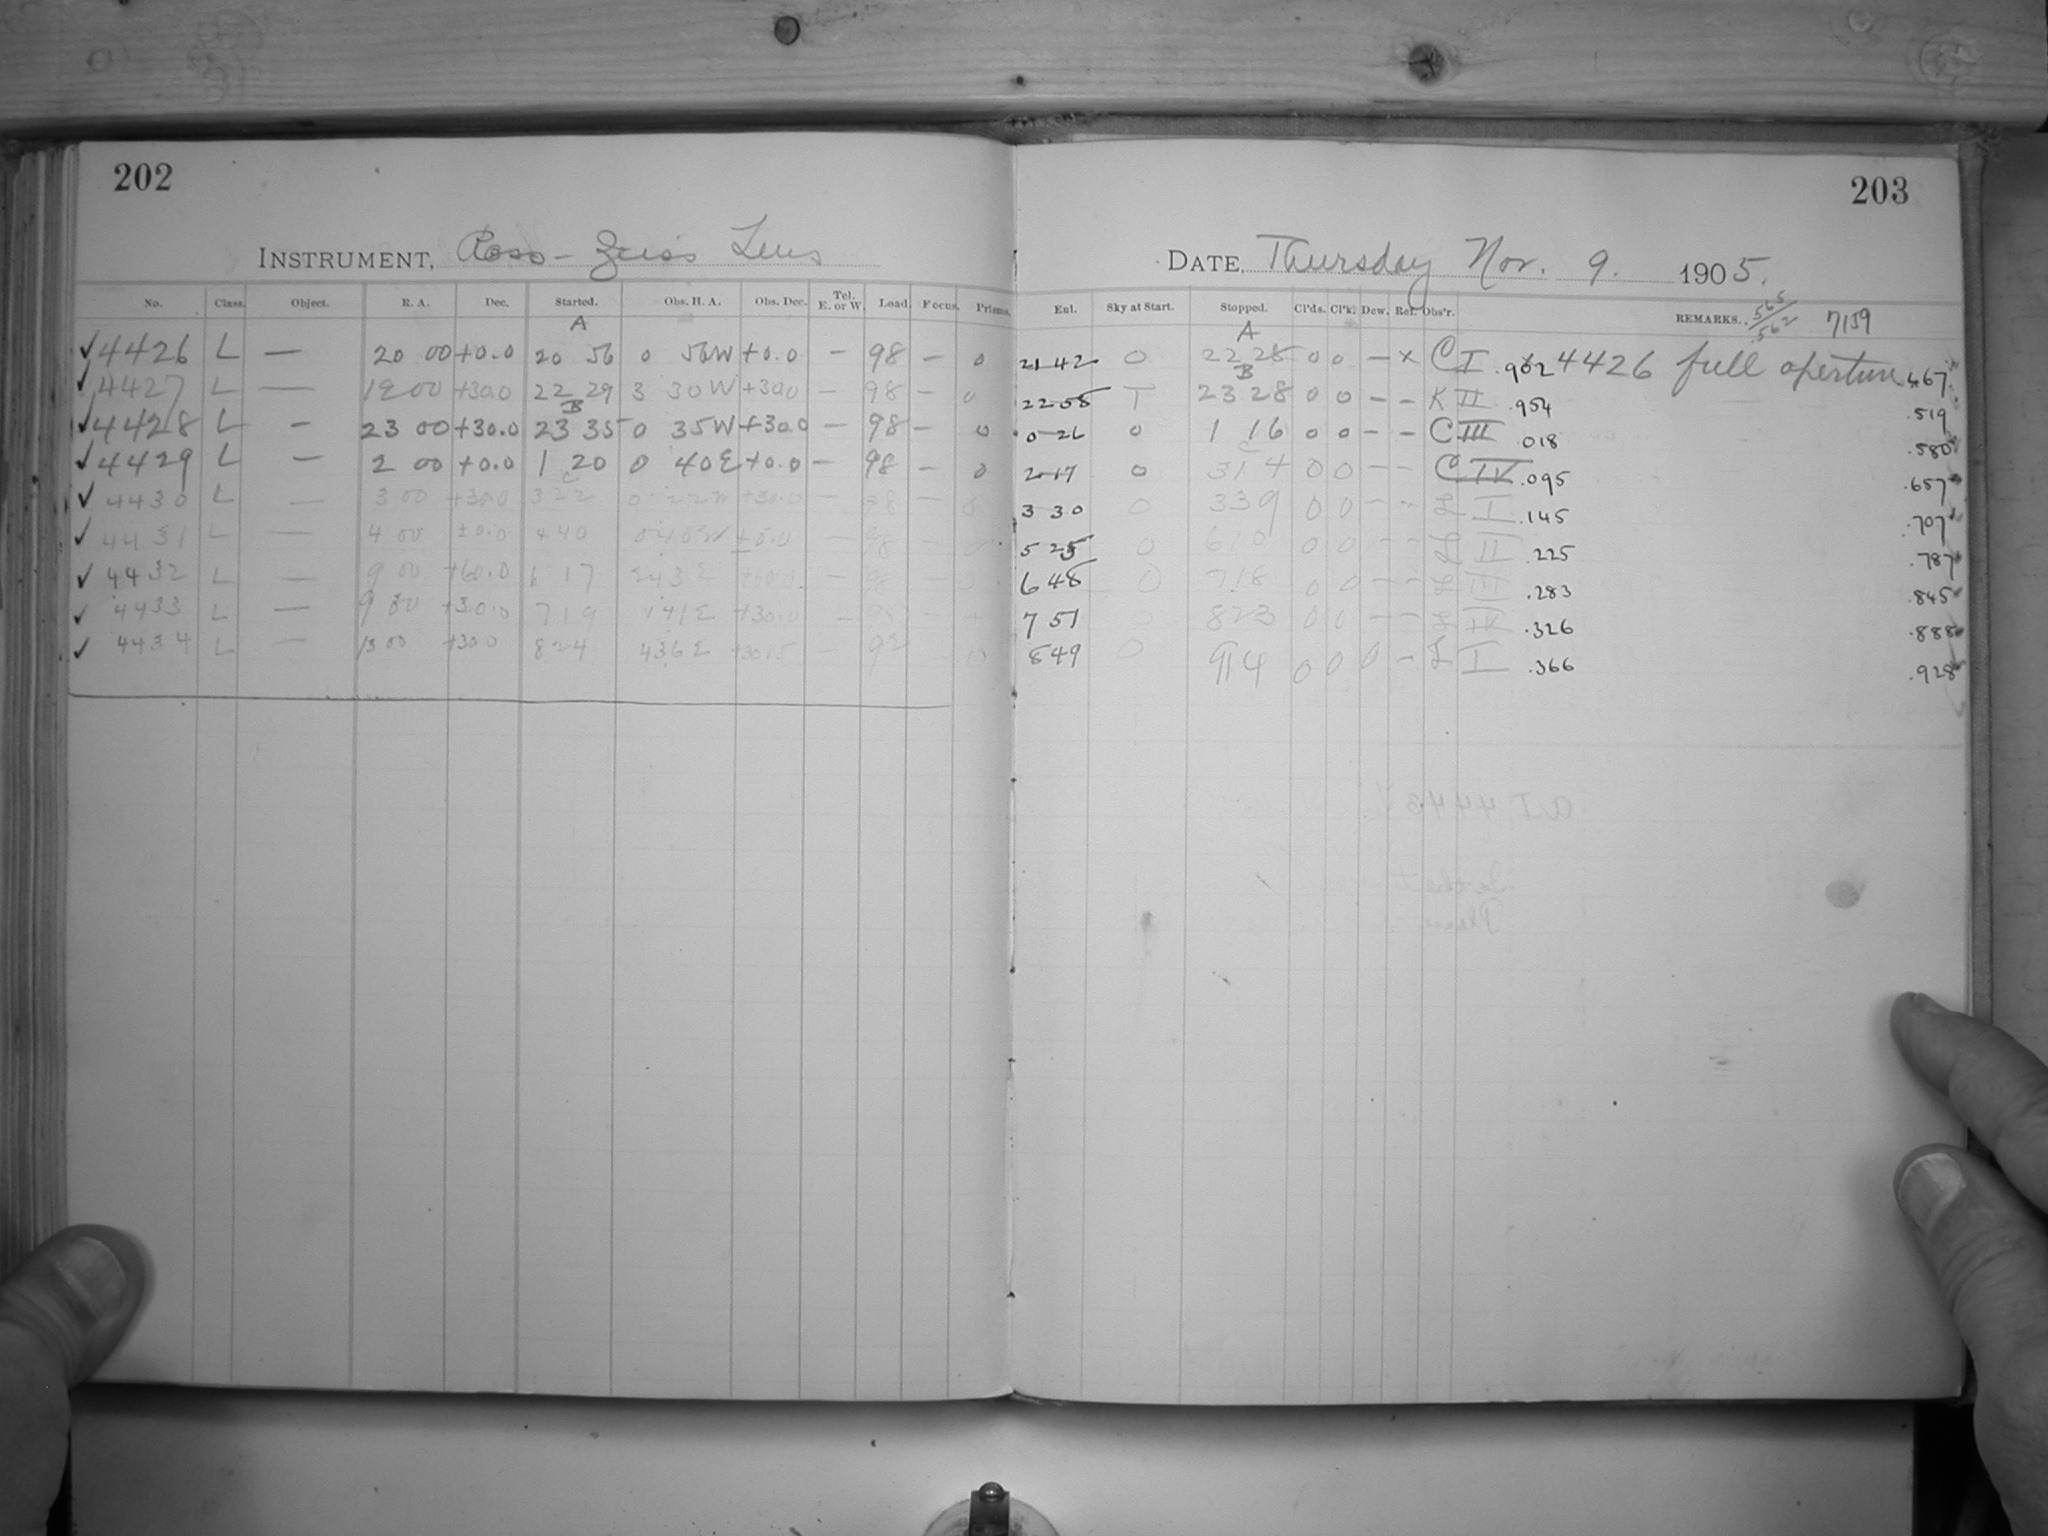 202
INSTRUMENT, Ross-Zeiss Lens
No. Class. Object. R. A. Dec. Started. Obs. H. A. Obs. Dec. Tel. E. or W. Load. Focus. Prisms.
A
✓4426 L — 20 00 +0.0 20 56 0 56W +0.0 — 98 — 0
✓4427 L — 19 00 +30.0 22 29 3 30W +30.0 — 98 — 0
B
✓4428 L — 23 00 +30.0 23 35 0 35W +30.0 — 98 — 0
✓4429 L — 2 00 +0.0 1 20 0 40E +0.0 — 98 — 0
C
✓4430 L — 3 00 +30.0 322 0 22W +30.0 — 98 — 0
✓4431 L — 4 00 ±0.0 440 040W ±0.0 — 98 — 0
✓4432 L — 9 00 +60.0 6 17 243E — 98 — 0
✓4433 L — 9 00 +30.0 719 141E +30.0 —
✓4434 L — 13 00 +30.0 824 436E — 0
203
DATE, Thursday Nov. 9. 1905.
Eul. Sky at Start. Stopped. Cl'ds. Cl'k. Dew. Ref. Obs'r. REMARKS. .565 .562 7159
A
21 42 0 22 28 0 0 — x C I .902 4426 full aperture .467
B
22 58 T 23 28 0 0 — — K II .954 .519
0 26 0 1 16 0 0 — — C III .018 .580
C
2 17 0 314 0 0 — — C IV .095 .657
3 30 0 339 0 0 — — L I .145 .707
5 25 0 610 0 0 — — L II .225 .787
6 48 0 718 0 0 — — L III .283 .845
7 51 0 823 0 0 — — L IV .326 .888
8 49 0 914 0 0 0 — L I .366 .928